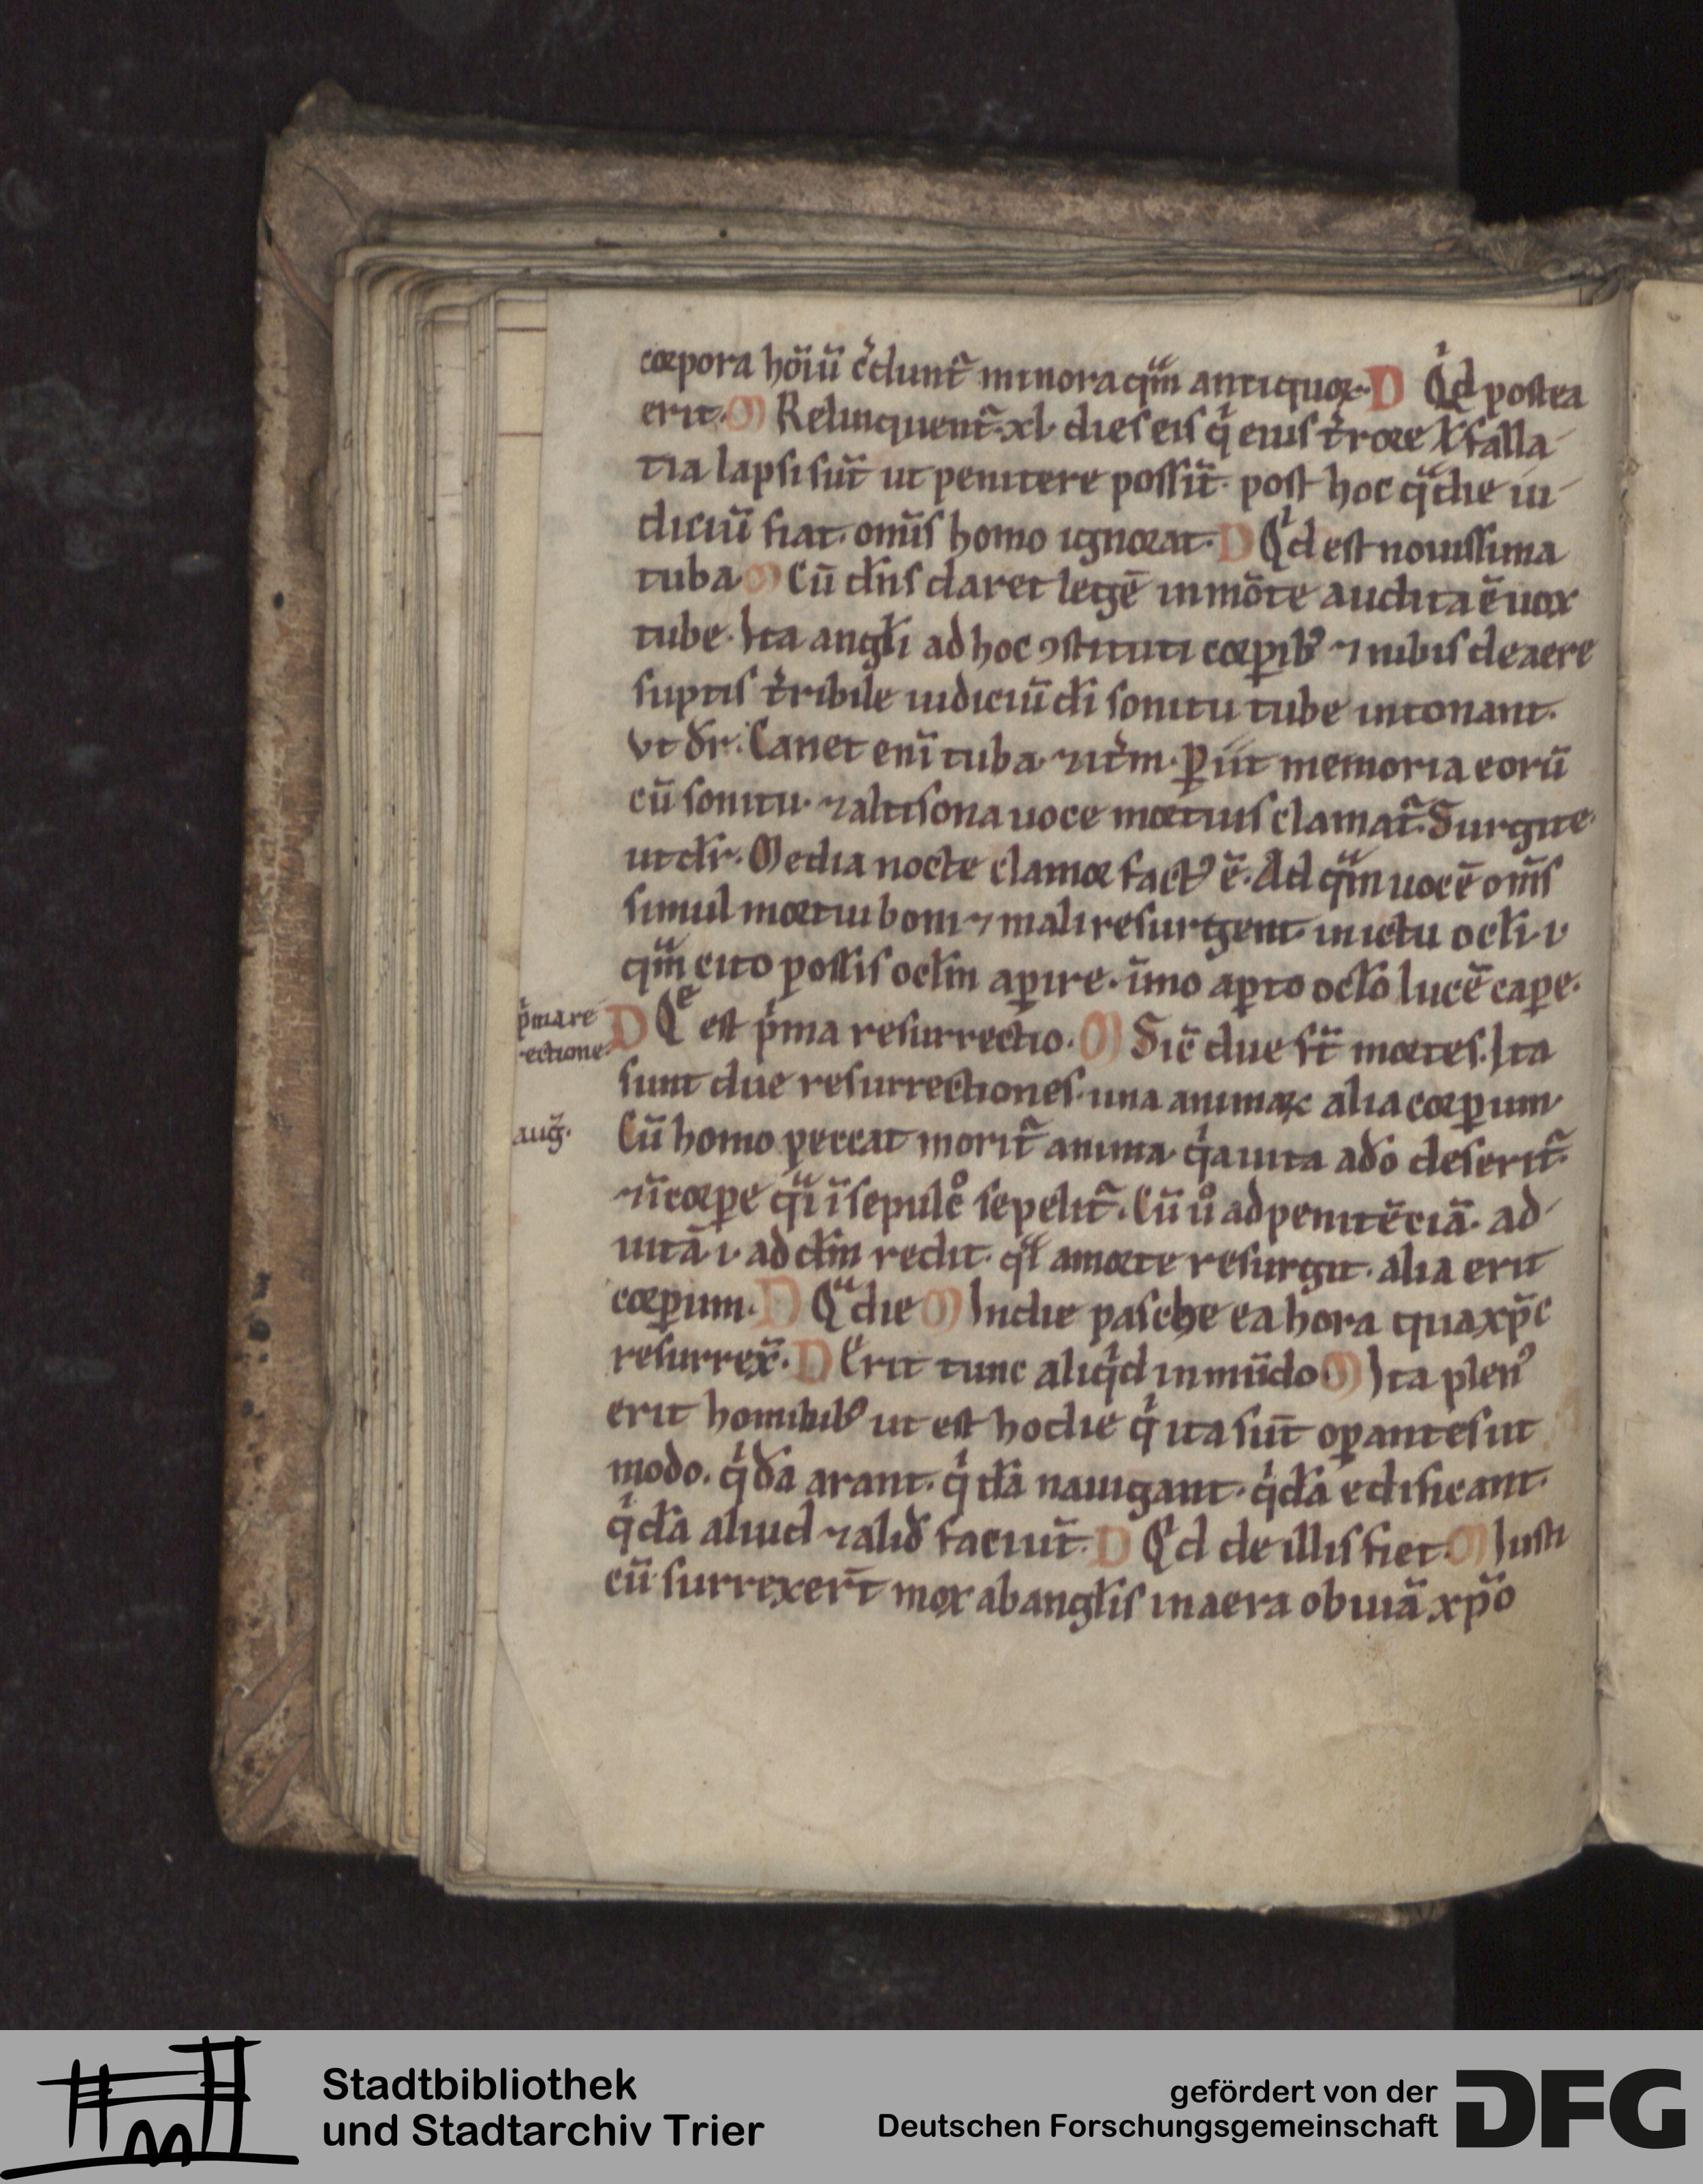 corpora hoīū c̄dunt᷑ minora qm̄ antiquoꝝ. D Qͥd postea
erit. M Relinquent᷑ xl dies eis qͥ eius t̄rore ł falla
tia lapsi sūt ut penitere possīt. post hoc qͣ die iu
diciū fiat. om̄is homo ignorat. D Qͥd est nouissima
tuba M Cū dn̄s daret legē in mōte audita ē uox
tube. Ita angłi ad hoc ꝯstituti corꝑibꝰ ⁊ nubis de aere
suptis t̄ribile iudiciū di sonitu tube intonant.
vt dr̄. Canet eni tuba. ⁊ itm̄. ꝑiit memoria eorū
cū sonitu. ⁊ altisona uoce mortuis clamat᷑. Surgite.
ut dr̄. Media nocte clamor factꝰ ē. Ad qͣm uocē om̄s
simul mortui boni ⁊ mali resurgent. in ictu ocłi. i.
qͣm cito possis ocłm aꝑire. īmo aꝑto ocło lucē caꝑe.
p̄ma re
rectione.
D Qͤ est pͥma resurrectio. M Sic̄ due st̄ mortes. Ita
sunt due resurrectiones. una animaꝝ alia corꝑum.
aug̃.
Cū homo peccat morit᷑ anima. qͥa uita a do deserit᷑.
⁊ ī corꝑe qͣi ī sepulcͦ sepelit᷑. Cū uͦ ad penitēciā. ad
uitā. i. ad dm̄ redit. qͣi a morte resurgit. alia erit
corꝑum. D Qͣ die M In die pasche ea hora qua xp̄c
resurrex̄. D Erit tunc aliqͥd in mūdo M Ita plenꝰ
erit hominibꝰ ut est hodie qͥ ita sūt oꝑantes ut
modo. qͥdā arant. qͥdā nauigant. qͥdā edificant.
qͥdā aliud ⁊ alid faciūt. D Qͥd de illis fiet. M Iusti
cū surrexer̄t mox ab angłis in aera obuiā xp̄o
Stadtbibliothek
und Stadtarchiv Trier
gefördert von der
Deutschen Forschungsgemeinschaft
DFG